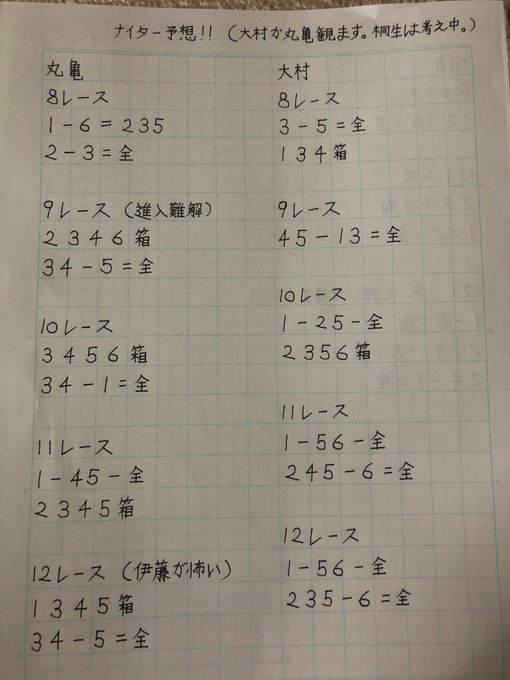 ナイター予想!! (大村か丸亀観ます。桐生は考え中。)
丸亀
8レース
1-6=235
2-3=全
9レース (進入難解)
2346箱
34-5=全
10レース
3456箱
34-1=全
11レース
1-45-全
2345箱
12レース (伊藤が怖い)
1345箱
34-5=全
大村
8レース
3-5=全
134箱
9レース
45-13=全
10レース
1-25-全
2356箱
11レース
1-56-全
245-6=全
12レース
1-56-全
235-6=全